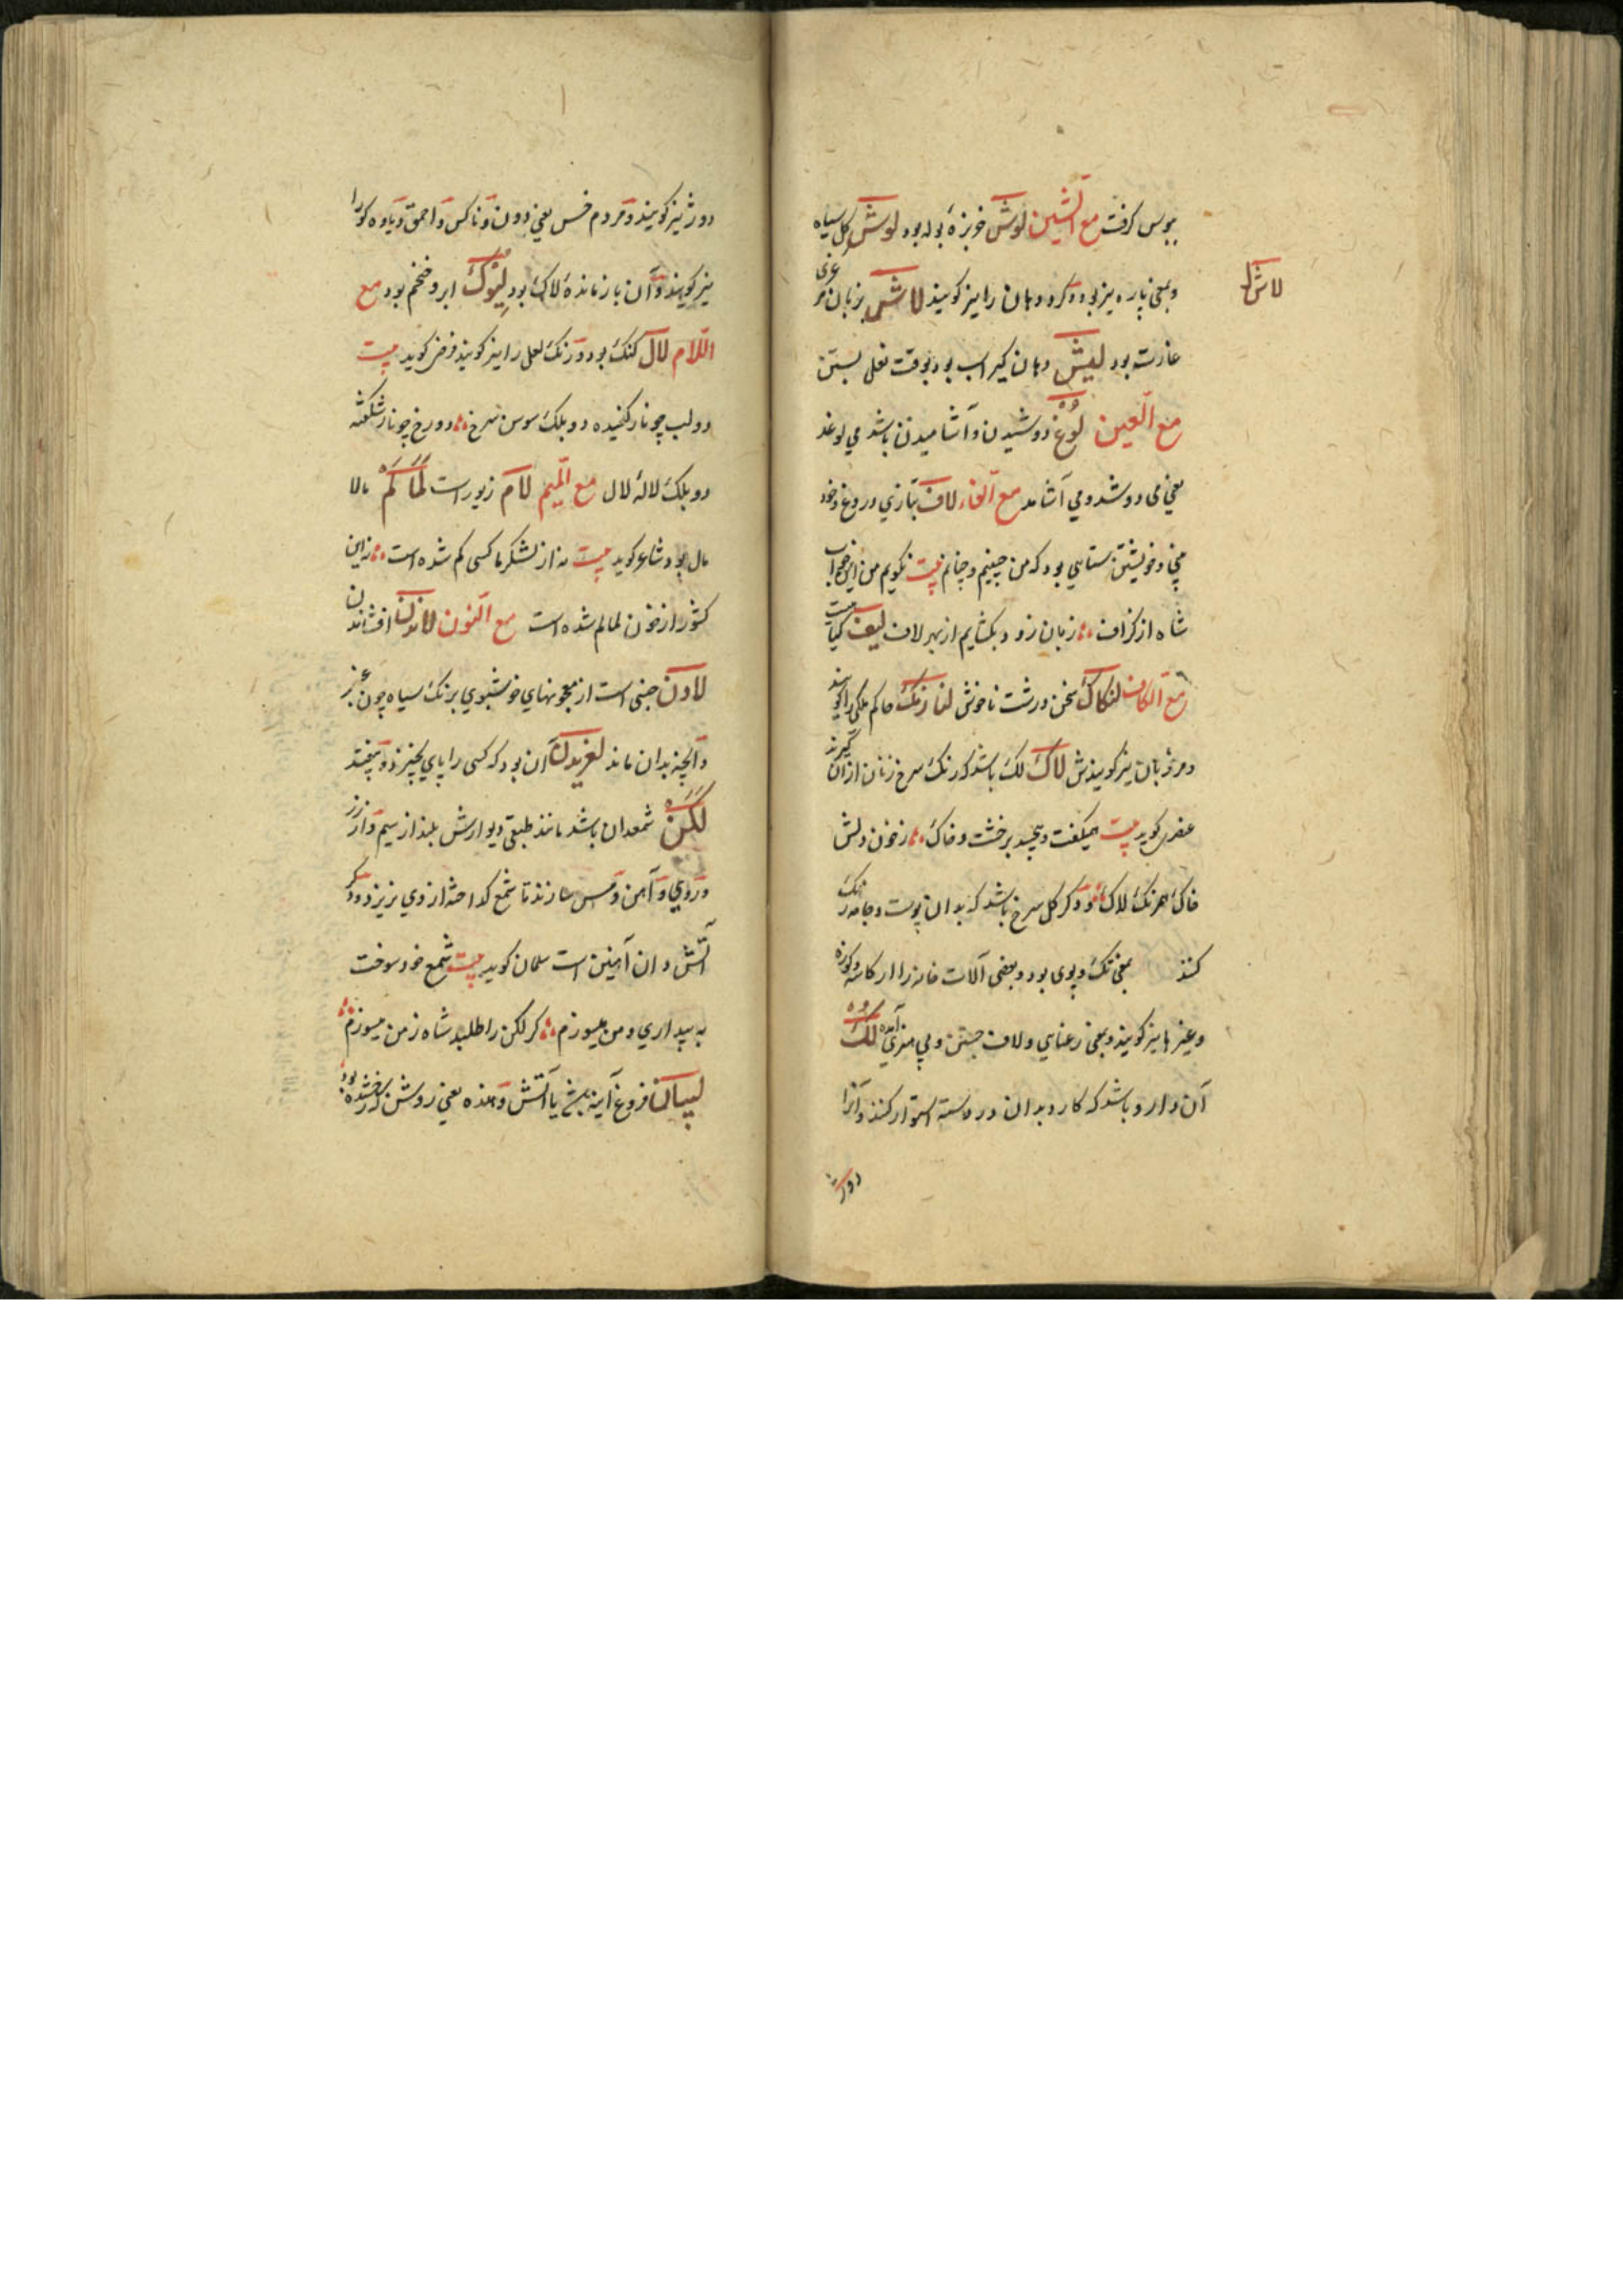 ببوس گرفت مع الشین لوش خربزهٔ بوله بود لوش گل سیاه
وبمعنی پاره نیز بود ودکر دهان را نیز کویند لاش بزبان مرغزی
لاش
غارت بود لیش دهان کیر اسب بود بوقت نعل بستن
مع الغین لوغ دوشیدن وآشامیدن باشد می لوغد
یعنی می دوشد ومی آشامد مع الفاء لاف بتازی دروغ وخود
وخویشتن ستایی بود که من چنینم وچنانم بیت نکویم من این
شاه از کزاف ؞ زبان زود بکشایم از بهر لاف لیف
مع الکاف لنکاک سخن درشت ناخوش حاکم ملکی را کویند
ومرزبان نیز کویندش لاک لک باشد که رنک سرخ زنان از آن کیرند
عنصری کوید بیت همیکفت وپیچید برخشت وخاک ؞ زخون دلش
خاک همرنک لاک ؞ ودکر کل سرخ باشد که بدان پوست وجامه رنک
کنند بمعنی تک وپوی بود وبعضی آلات خانه را از کاسه وکوزه
وغیرها نیز کویند وبمعنی رعنایی ولاف جستن وبی مغزی آمده لک
آن دارو باشد که کارد بدان در دسته استوار کنند وآنرا
دوژ
دوژ نیز کویند ومردم خس یعنی دون وناکس واحمق ویاوه کو را
نیز کویند وآن باز ماندهٔ لاک بود لیوک ابرو ضخم بود مع
اللام لال کنک بود ورنک لعل را نیز کویند فرخی کوید بیت
دو لب چو نار کفیده دو بلک سوسن سرخ ؞ دو رخ چو نار شکفته
دو بلک لالهٔ لال مع المیم لام زیور است لمالم مالا
مال بود شاعر کوید بیت نه از لشکر ما کسی کم شده است ؞ نه این
کشور از خون لمالم شده است مع النون لاندن افشاندن
لادن جنسی است از معجونهای خوشبوی برنک سیاه چون عنبر
وآنچه بدان ماند لغزیدن آن بود که کسی را پای بخیزد وبیفتد
لکن شمعدان باشد مانند طبقی دیوارش بلند از سیم واز زر
وروی وآهن ومس سازند تا شمع کداخته از وی نریزد ودکر
آتش دان آهنین است سلمان کوید بیت شمع خود سوخت
به بیداری ومن میسوزم ؞ کر لکن را طلبد شاه زمن میسوزم ؞
لیسانا فروغ آینه یا آتش یعنی روشن که رخشنده بود